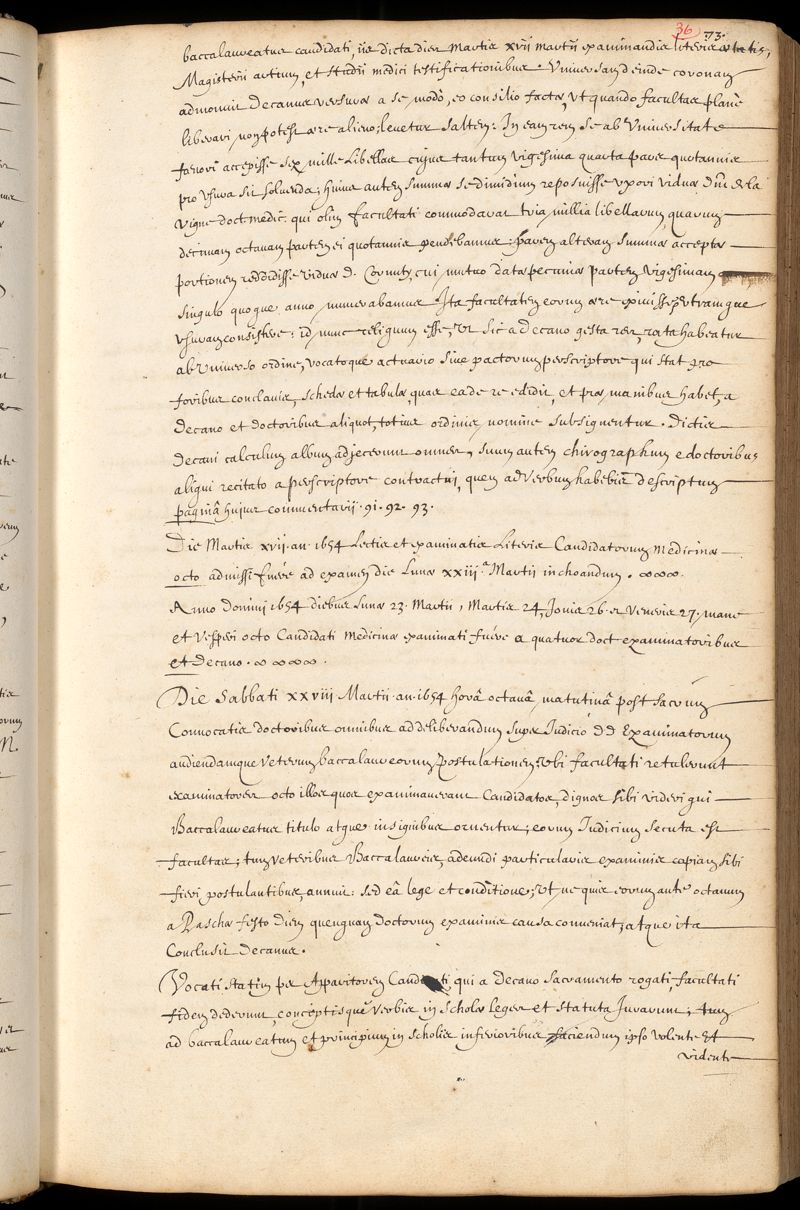 36 73.
baccalaureatus candidati, iis dicta dies Martis xvii martii examinandis literis ætatis,
Magisterii artium, et Studii medici testificationibus. Universam deinde coronam
admonuit Decanus versuræ a se modò, eo consilio factæ, Vt quando facultas planè
liberari non potest ære alieno, levetur saltem: In eam rem se ab Vniversitate
fænori accepisse sex mille Libellas cujus tantum vigesima quarta pars quotannis
pro vsura sit soluenda; huius autem summæ se dimidium reposuisse vxori viduæ Dni de la
Vigne doct. medic. qui olim facultati commodarat tria millia libellarum, quarum
decimam octavam partem ei quotannis pendebamus: parem alteram summæ acceptæ
portionem reddidisse viduæ D. Cornuty, cui mutuo datæ pecuniæ partem vigesimam
singulo quoque anno, numerabamus. Ita facultatem eorum ære exiuisse, vtramque
vsuram consistere: id nunc reliquum esse, Vt sic a Decano gesta res, rata habeatur
ab Vniuerso ordine, vocatoque actuario siue pactorum perscriptore qui stat pro
foribus conclauis, schedæ et tabulæ, quas ea de re edidit, et præ manibus habet, a
Decano et doctoribus aliquot, totius ordinis nomine subsignentur. Dictis
Decani calculum album adjecerunt omnes, suum autem chirographum e doctoribus
aliqui recitato a perscriptore contractui, quem ad Verbum habebis descriptum
paginâ hujus commentarii. 91. 92. 93.
Die Martis xvii. an. 1654 Lectis et examinatis Literis Candidatorum medicinæ
octo admissi fuére ad examen die Lunæ XXIII.ª Martii inchoandum.
Anno domini 1654 diebus Lunæ 23. Martii, Martis 24, Jovis 26. et Veneris 27, mane
et Vesperi octo Candidati medicinæ examinati fuére a quatuor doct. examinatoribus
et Decano.
Die Sabbati XXVIII. Martii. an. 1654 horâ octauâ, matutinâ post Sacrum
Conuocatis doctoribus omnibus ad deliberandum super Judicio DD Examinatorum
audiendamque Veterum baccalaureorum Postulationem; Vbi facultati retulerunt
examinatores octo illos quos examinauerant Candidatos, dignos sibi videri qui
Baccalaureatus titulo atque insignibus ornentur; eorum Judicium secuta est
facultas; tum veteribus Baccalaureis, adeundi particularis examinis copiam sibi
fieri postulantibus, annuit: sed eâ lege et conditione, Vt ne quis eorum ante octauum
a Paschæ festo diem quenquam doctorum examinis causa conueniat, atque ita
Conclusit Decanus.
Vocati statim per Apparitorem Candidati, qui a Decano Sacramento rogati, facultati
fidem dederunt, conceptisque Verbis in Scholæ leges et statuta Jurarunt; tum
ad baccalaureatum et principium in scholis inferioribus faciendum ipso volente Et
vidente